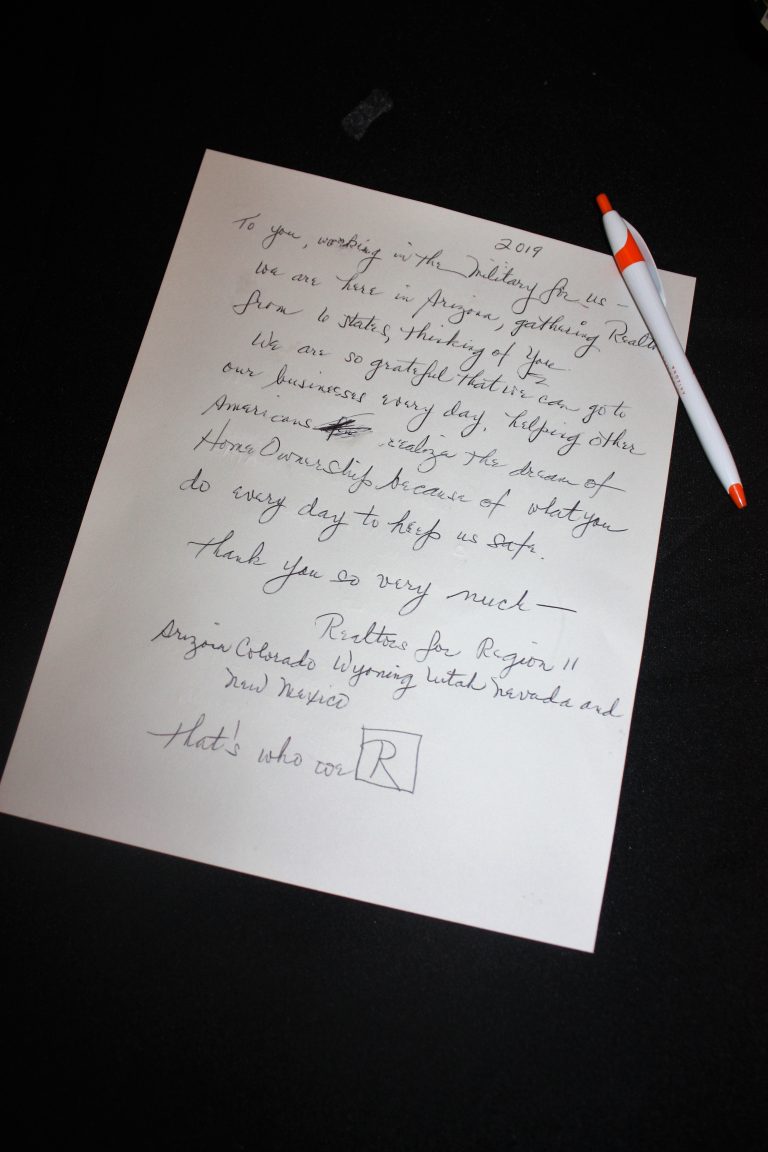 2019
To you, working in the Military for us -
We are here in Arizona, gathering Realto
from 6 states, thinking of You.
We are so grateful that we can go to
our businesses every day, helping other
Americans realize the dream of
Home Ownership because of what you
do every day to keep us safe.
Thank you so very much —
Realtors for Region 11
Arizona Colorado Wyoming Utah Nevada and
New Mexico
That's who we R